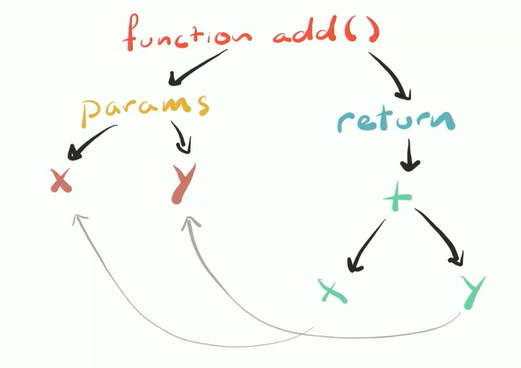 function add()
params
return
x
y
+
x
y